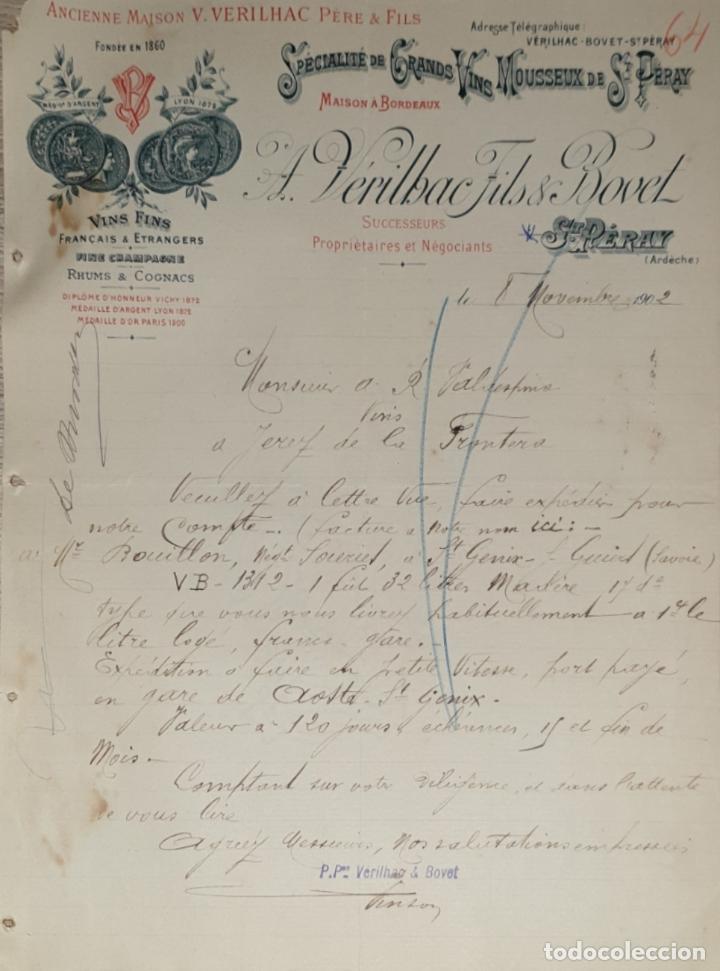 ANCIENNE MAISON V. VERILHAC PÈRE & FILS
64
FONDÉE EN 1860
Adresse Télégraphique:
VÉRILHAC-BOVET-ST PÉRAY
SPÉCIALITÉ DE GRANDS VINS MOUSSEUX DE ST PÉRAY
MAISON À BORDEAUX
MÉD.LLE D'ARGENT
LYON 1872
VB
A. Vérilhac Fils & Bovet
SUCCESSEURS
Propriétaires et Négociants
ST PÉRAY
(Ardèche)
VINS FINS
FRANÇAIS & ETRANGERS
FINE CHAMPAGNE
RHUMS & COGNACS
DIPLÔME D'HONNEUR VICHY 1872
MÉDAILLE D'ARGENT LYON 1872
MÉDAILLE D'OR PARIS 1900
le 8 Novembre 1902
Monsieur A R Valdespino
Vins
a Jerez de la Frontera
Veuillez à lettre vue, faire expédier pour
notre Compte - (facture a notre nom ici: -
a Mr Bouillon, Négt à St Genix - s/ Guiers (Savoie)
VB - 1312 - 1 fût 32 litres Madère 17 d°
type que vous nous livrez habituellement a 1 le
litre logé, franco gare. -
Expédition a faire en petite Vitesse, port payé,
en gare de Aoste - St Genix -
Valeur à 120 jours, échéances, 15 et fin de
Mois -
Comptant sur votre diligence, et dans l'attente
de vous lire
Agréez Messieurs, Nos salutations empressées
P.Pon Vérilhac & Bovet